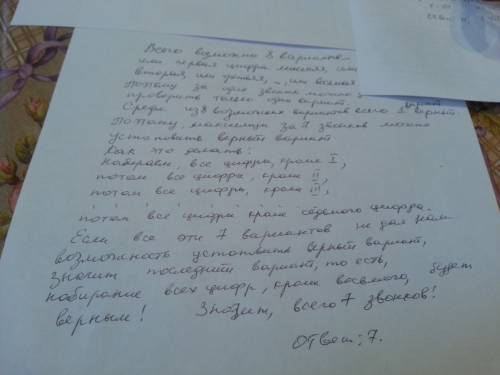 Всего возможно 8 вариантов
или первая цифра лишняя, или
вторая, или третья, ..., или восьмая
Поэтому за один звонок можно
проверить только один вариант.
Среди из 8 возможных вариантов всего 1 вариант верный.
Поэтому, максимум за 7 звонков можно
установить верный вариант
Как это делать:
Набираем, все цифры, кроме I,
потом все цифры, кроме II,
потом все цифры, кроме III,
. . . . . . . . . .
потом все цифры кроме седьмого цифра.
Если все эти 7 вариантов не дал нам
возможность установить верный вариант,
значит последний вариант, то есть,
набирание всех цифр, кроме восьмого, будет
верным! Значит, всего 7 звонков!
Ответ: 7.